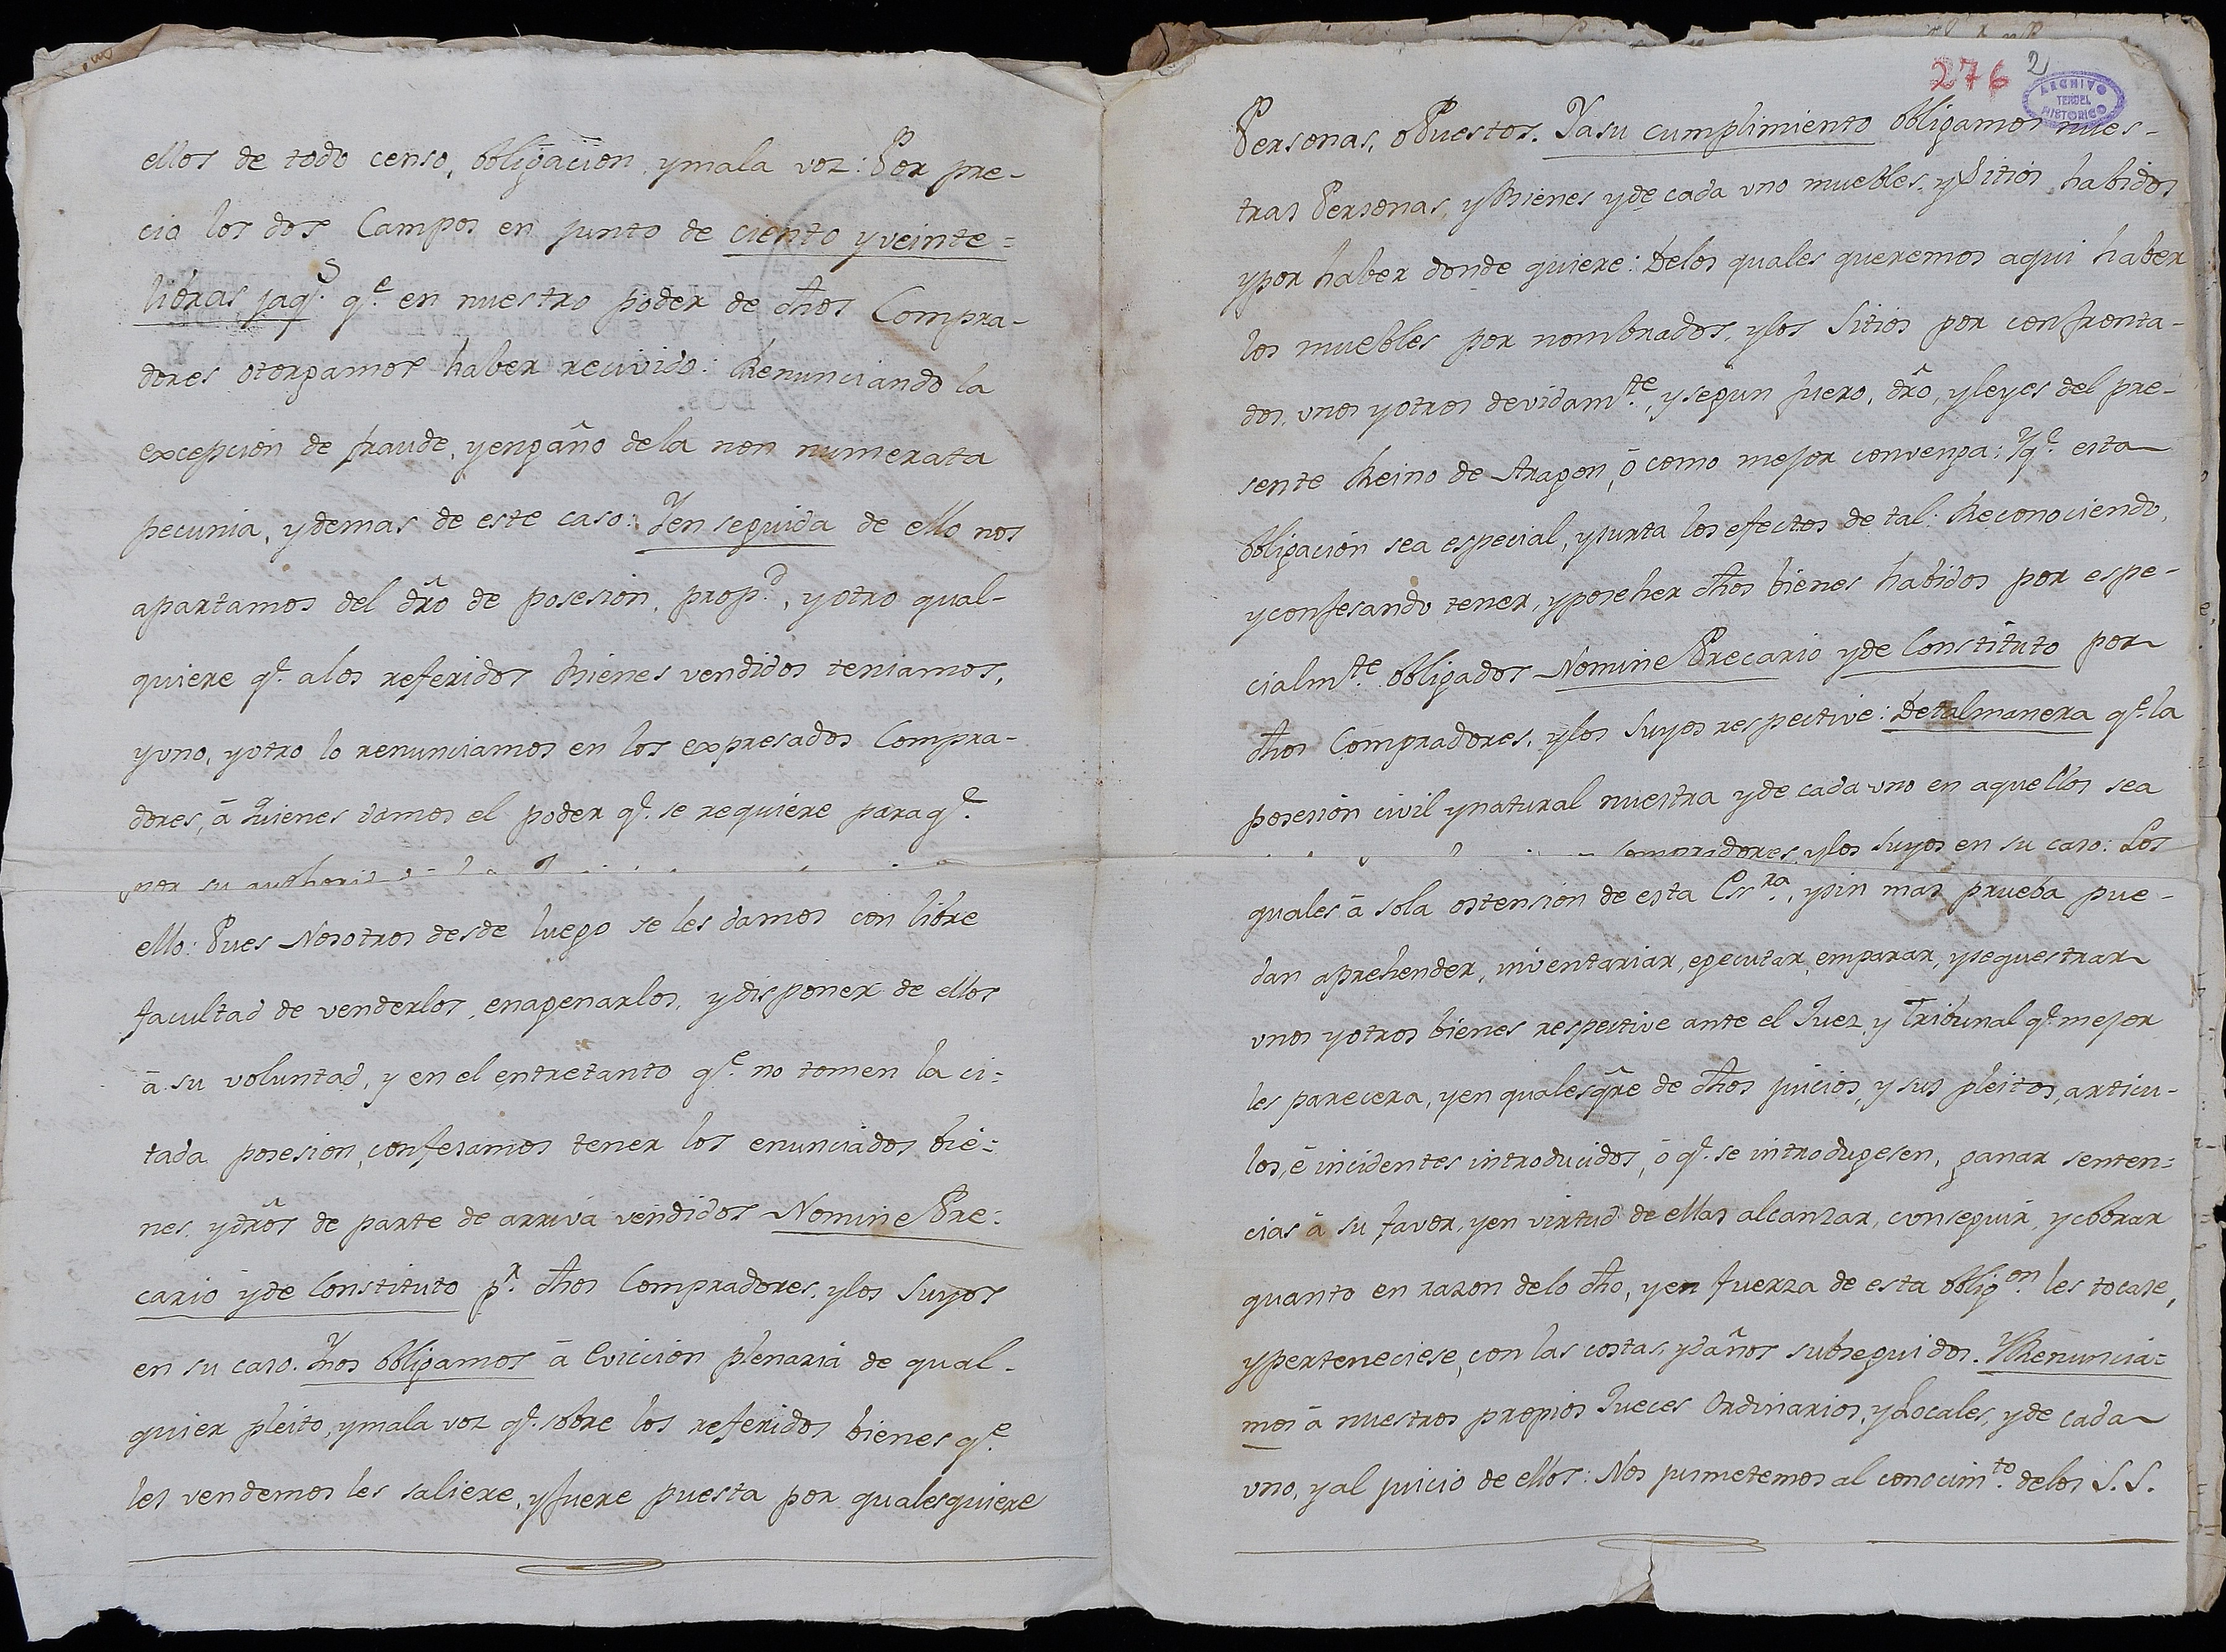 ellos de todo censo, obligacion, y mala voz: Por pre-
cio los dos Campos en junto de ciento y veinte=
libras jaq.s q.e en nuestro poder de dhos Compra-
dores otorgamos haber recivido: Renunciando la
excepcion de fraude, y engaño de la non numerata
pecunia, y demas de este caso: Y en seguida de ello nos
apartamos del dro de posesion, prop.d, y otro qual-
quiere q.e a los referidos Bienes vendidos teniamos,
y uno, y otro lo renunciamos en los expresados Compra-
dores, â Quienes damos el poder q.e se requiere para q.e
por su
ello: Pues Nosotros desde luego se les damos con libre
facultad de venderlos, enagenarlos, y disponer de ellos
â su voluntad, y en el entretanto q.e no tomen la ci=
tada posesion, confesamos tener los enunciados bie=
nes, y dros de parte de arriva vendidos Nomine Pre=
cario y de Constituto p.r dhos Compradores, y los Suyos
en su caso. Y nos obligamos â Eviccion plenaria de qual-
quier pleito, y mala voz q.e sobre los referidos bienes q.e
les vendemos les saliere, y fuere puesta por qualesquiere
276 2
ARCHIVO HISTORICO TERUEL
Personas, o Puestos. Y a su cumplimiento obligamos nues-
tras Personas, y Bienes y de cada uno muebles, y Sitios habidos
y por haber donde quiere: De los quales queremos aqui haber
los muebles por nombrados, y los Sitios por confronta-
dos, unos y otros devidam.te, y segun fuero, dro, y leyes del pre-
sente Reino de Aragon, ô como mejor convenga: Y q.e esta
obligacion sea especial, y surta los efectos de tal: Reconociendo,
y confesando tener, y poseher dhos bienes habidos por espe-
cialm.te obligados Nomine Precario y de Constituto por
dhos Compradores, y los Suyos respective: De tal manera q.e la
posesion civil y natural nuestra y de cada uno en aquellos sea
compradores, y los Suyos en su caso: Los
quales â sola ostension de esta Es.ra, y sin mas prueba pue-
dan aprehender, inventariar, egecutar, emparar, y sequestrar
unos y otros bienes respective ante el Juez, y Tribunal q.e mejor
les parecera, y en qualesqre de dhos juicios, y sus pleitos, articu-
los, ê incidentes introducidos, ô q.e se introdugesen, ganar senten=
cias â su favor, y en virtud de ellas alcanzar, conseguir, y cobrar
quanto en razon de lo dho, y en fuerza de esta oblig.on les tocase,
y perteneciese, con las costas, y daños subseguidos. Y Renuncia=
mos â nuestros propios Jueces Ordinarios, y Locales, y de cada
uno, y al juicio de ellos: Nos jusmetemos al conocim.to de los S.S.